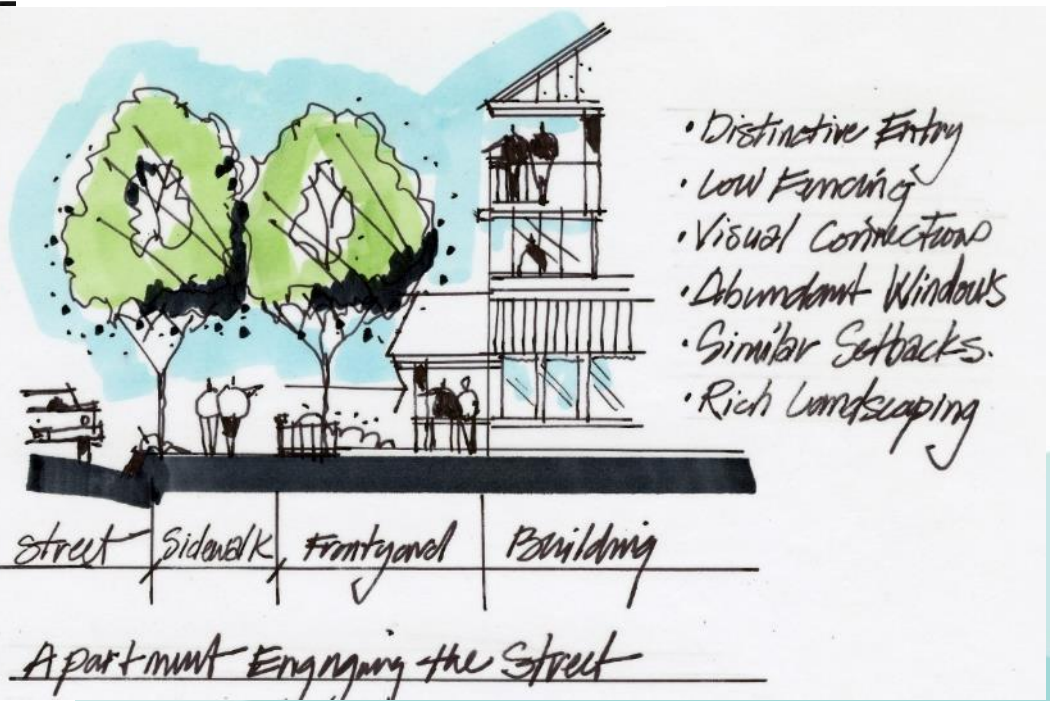 • Distinctive Entry
• Low Fencing
• Visual Connections
• Abundant Windows
• Similar Setbacks.
• Rich Landscaping
Street Sidewalk Frontyard Building
Apartment Engaging the Street